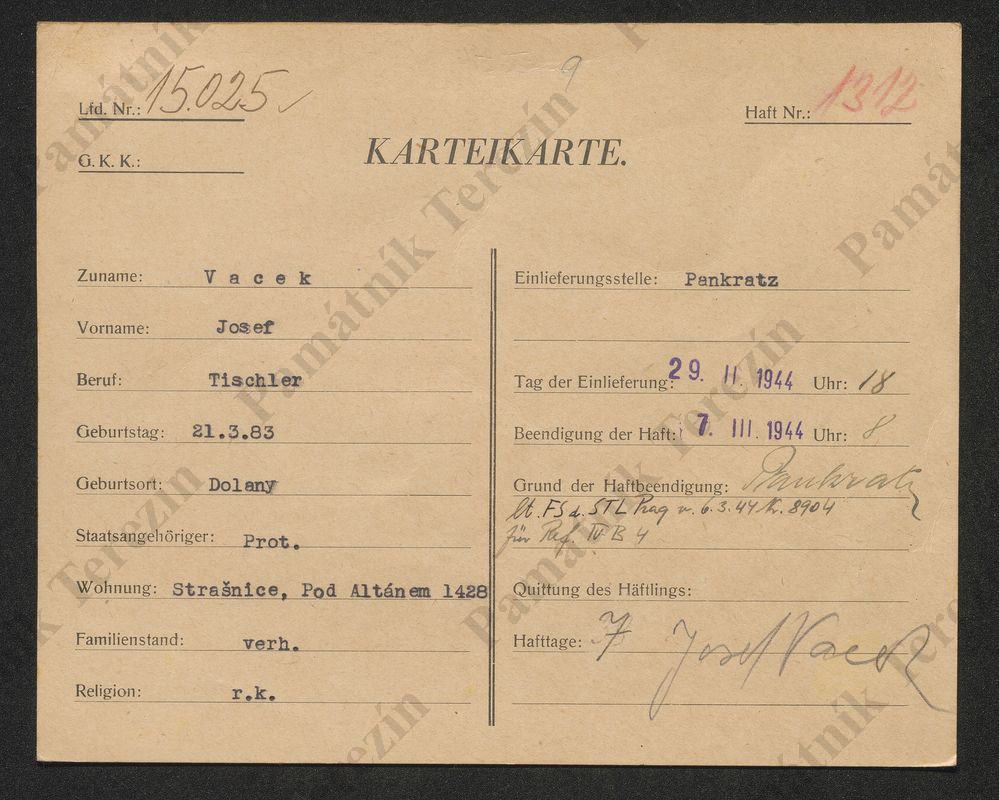 Lfd. Nr.: 15.025
9
Haft Nr.: 1312
G. K. K.:
KARTEIKARTE.
Zuname: Vacek
Vorname: Josef
Beruf: Tischler
Geburtstag: 21.3.83
Geburtsort: Dolany
Staatsangehöriger: Prot.
Wohnung: Strašnice, Pod Altánem 1428
Familienstand: verh.
Religion: r.k.
Einlieferungsstelle: Pankratz
Tag der Einlieferung: 29. II. 1944 Uhr: 18
Beendigung der Haft: 7. III. 1944 Uhr: 8
Grund der Haftbeendigung: Pankratz
lt. FS d. STL Prag v. 6.3.44 Nr. 8904
für Ref. IV B 4
Quittung des Häftlings:
Hafttage: 7 Josef Vacek
Památník Terezín